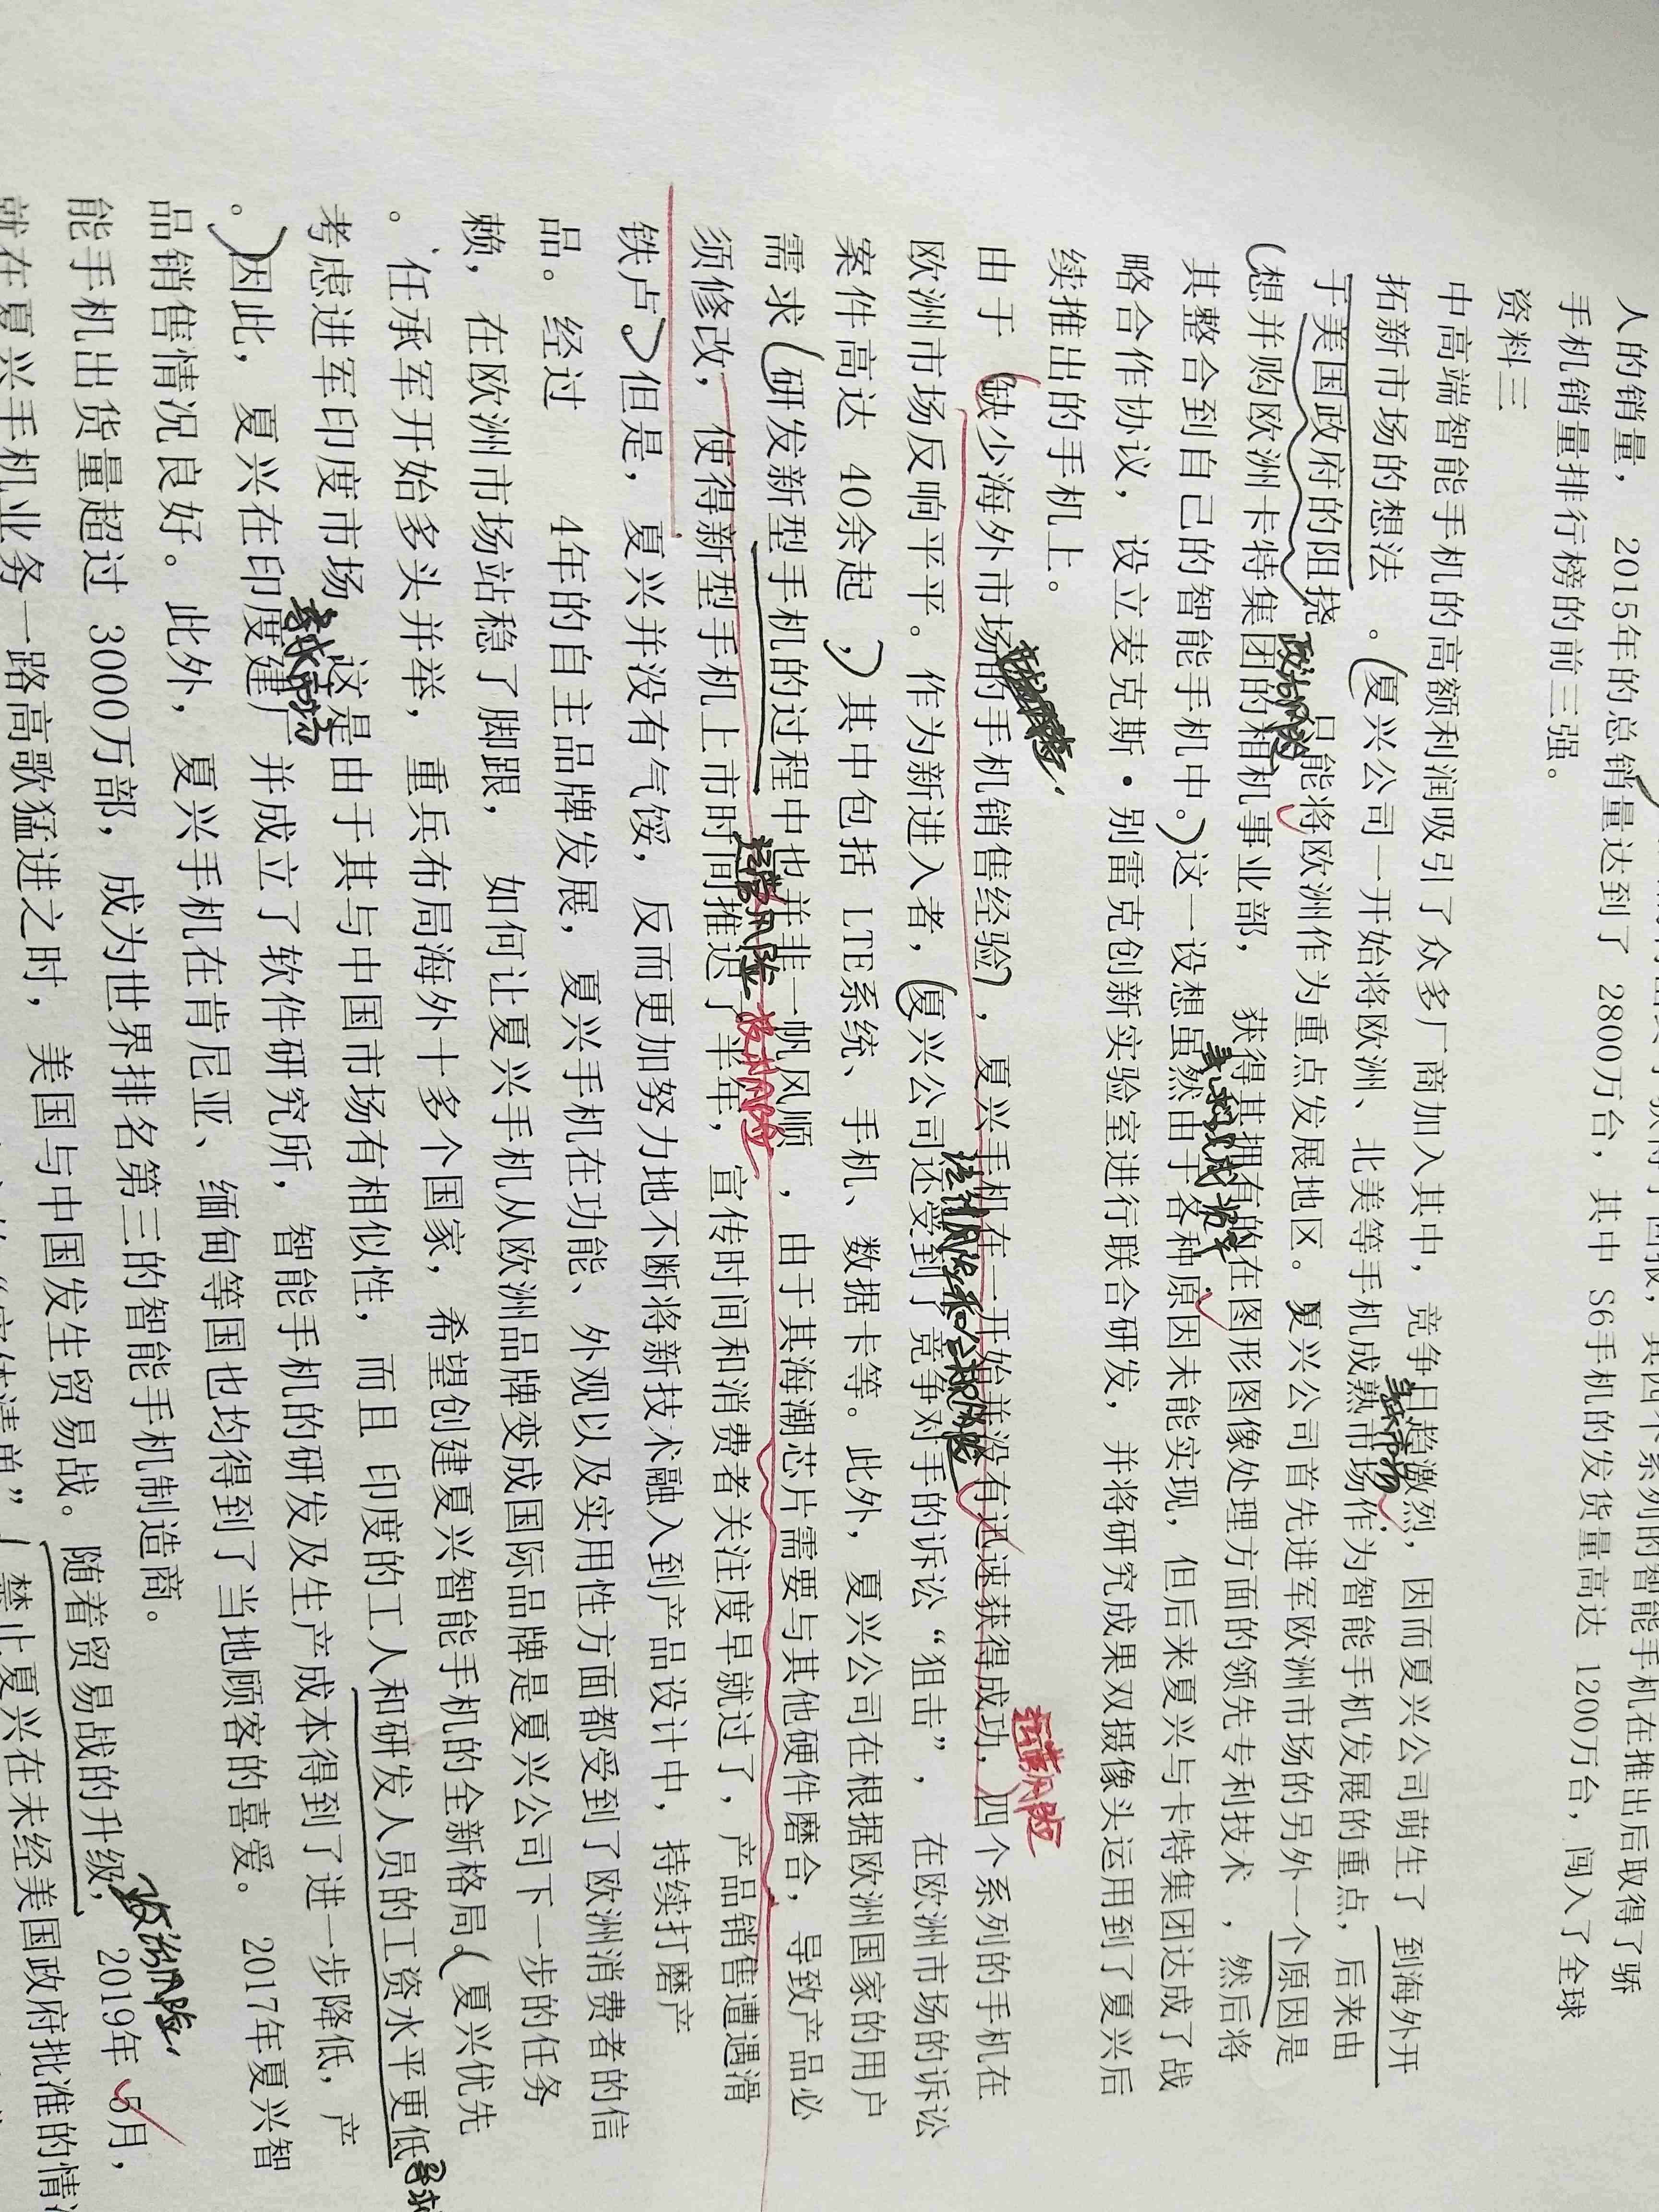 人的销量， 2015年的总销量达到了 2800万台，其中 S6手机的发货量高达 1200万台，闯入了全球
手机销量排行榜的前三强。
资料三
中高端智能手机的高额利润吸引了众多厂商加入其中，竞争日趋激烈，因而夏兴公司萌生了 到海外开
拓新市场的想法 。(夏兴公司一开始将欧洲、北美等手机成熟市场作为智能手机发展的重点，后来由
寻求市场
于美国政府的阻挠 只能将欧洲作为重点发展地区。夏兴公司首先进军欧洲市场的另外一个原因是
政治风险
(想并购欧洲卡特集团的相机事业部， 获得其拥有的在图形图像处理方面的领先专利技术 ，然后将
其整合到自己的智能手机中。)这一设想虽然由于各种原因未能实现，但后来夏兴与卡特集团达成了战
略合作协议，设立麦克斯·别雷克创新实验室进行联合研发，并将研究成果双摄像头运用到了夏兴后
续推出的手机上。
由于 (缺少海外市场的手机销售经验)，夏兴手机在一开始并没有迅速获得成功，四个系列的手机在
运营风险
欧洲市场反响平平。作为新进入者，(夏兴公司还受到了竞争对手的诉讼“狙击”， 在欧洲市场的诉讼
法律风险和合规风险
案件高达 40余起 ，)其中包括 LTE系统、手机、数据卡等。此外，夏兴公司在根据欧洲国家的用户
需求(研发新型手机的过程中也并非一帆风顺 ，由于其海潮芯片需要与其他硬件磨合，导致产品必
运营风险 技术风险
须修改，使得新型手机上市时间推迟了半年，宣传时间和消费者关注度早就过了，产品销售遭遇滑
铁卢。)但是，夏兴并没有气馁，反而更加努力地不断将新技术融入到产品设计中，持续打磨产
品。经过 4年的自主品牌发展，夏兴手机在功能、外观以及实用性方面都受到了欧洲消费者的信
赖，在欧洲市场站稳了脚跟，如何让夏兴手机从欧洲品牌变成国际品牌是夏兴公司下一步的任务
。任承军开始多头并举，重兵布局海外十多个国家，希望创建夏兴智能手机的全新格局。(夏兴优先
考虑进军印度市场 ，这是由于其与中国市场有相似性，而且 印度的工人和研发人员的工资水平更低
寻求市场
。)因此，夏兴在印度建厂 并成立了软件研究所，智能手机的研发及生产成本得到了进一步降低，产
品销售情况良好。此外，夏兴手机在肯尼亚、缅甸等国也均得到了当地顾客的喜爱。 2017年夏兴智
能手机出货量超过 3000万部，成为世界排名第三的智能手机制造商。
就在夏兴手机业务一路高歌猛进之时，美国与中国发生贸易战。随着贸易战的升级，2019年 5月，
政治风险